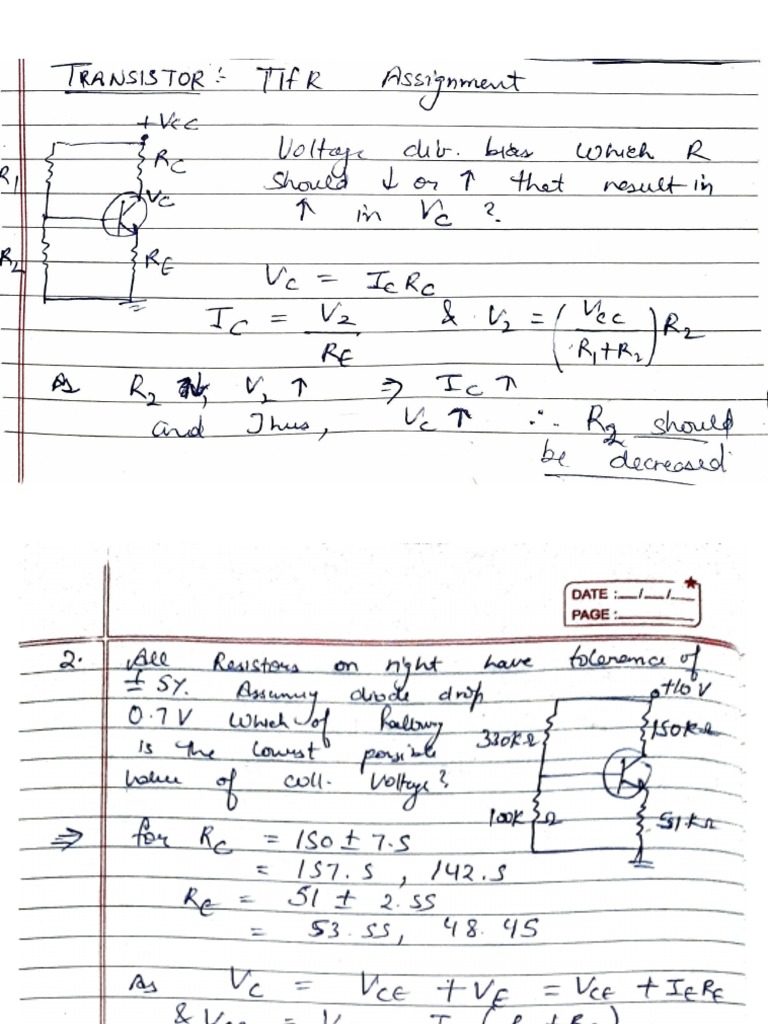 TRANSISTOR :- TIfR Assignment
+Vcc
RC
R1
VC
R2
RE
Voltage div. bias which R
should ↓ or ↑ that result in
↑ in VC ?
VC = IC RC
IC = V2 / RE & V2 = (VCC / R1+R2) R2
As R2 , V2 ↑ ⇒ IC ↑
and Thus, VC ↑ ∴ R2 should
be decreased
DATE :__/__/__
PAGE :
2. All Resistors on right have tolerance of
± 5%. Assuming diode drop
0.7 V which of
is the lowest possible
value of coll. voltage?
+10 V
330KΩ
150KΩ
100KΩ
51KΩ
⇒ for RC = 150 ± 7.5
= 157.5 , 142.5
RE = 51 ± 2.55
= 53.55, 48.45
As VC = VCE + VE = VCE + IE RE